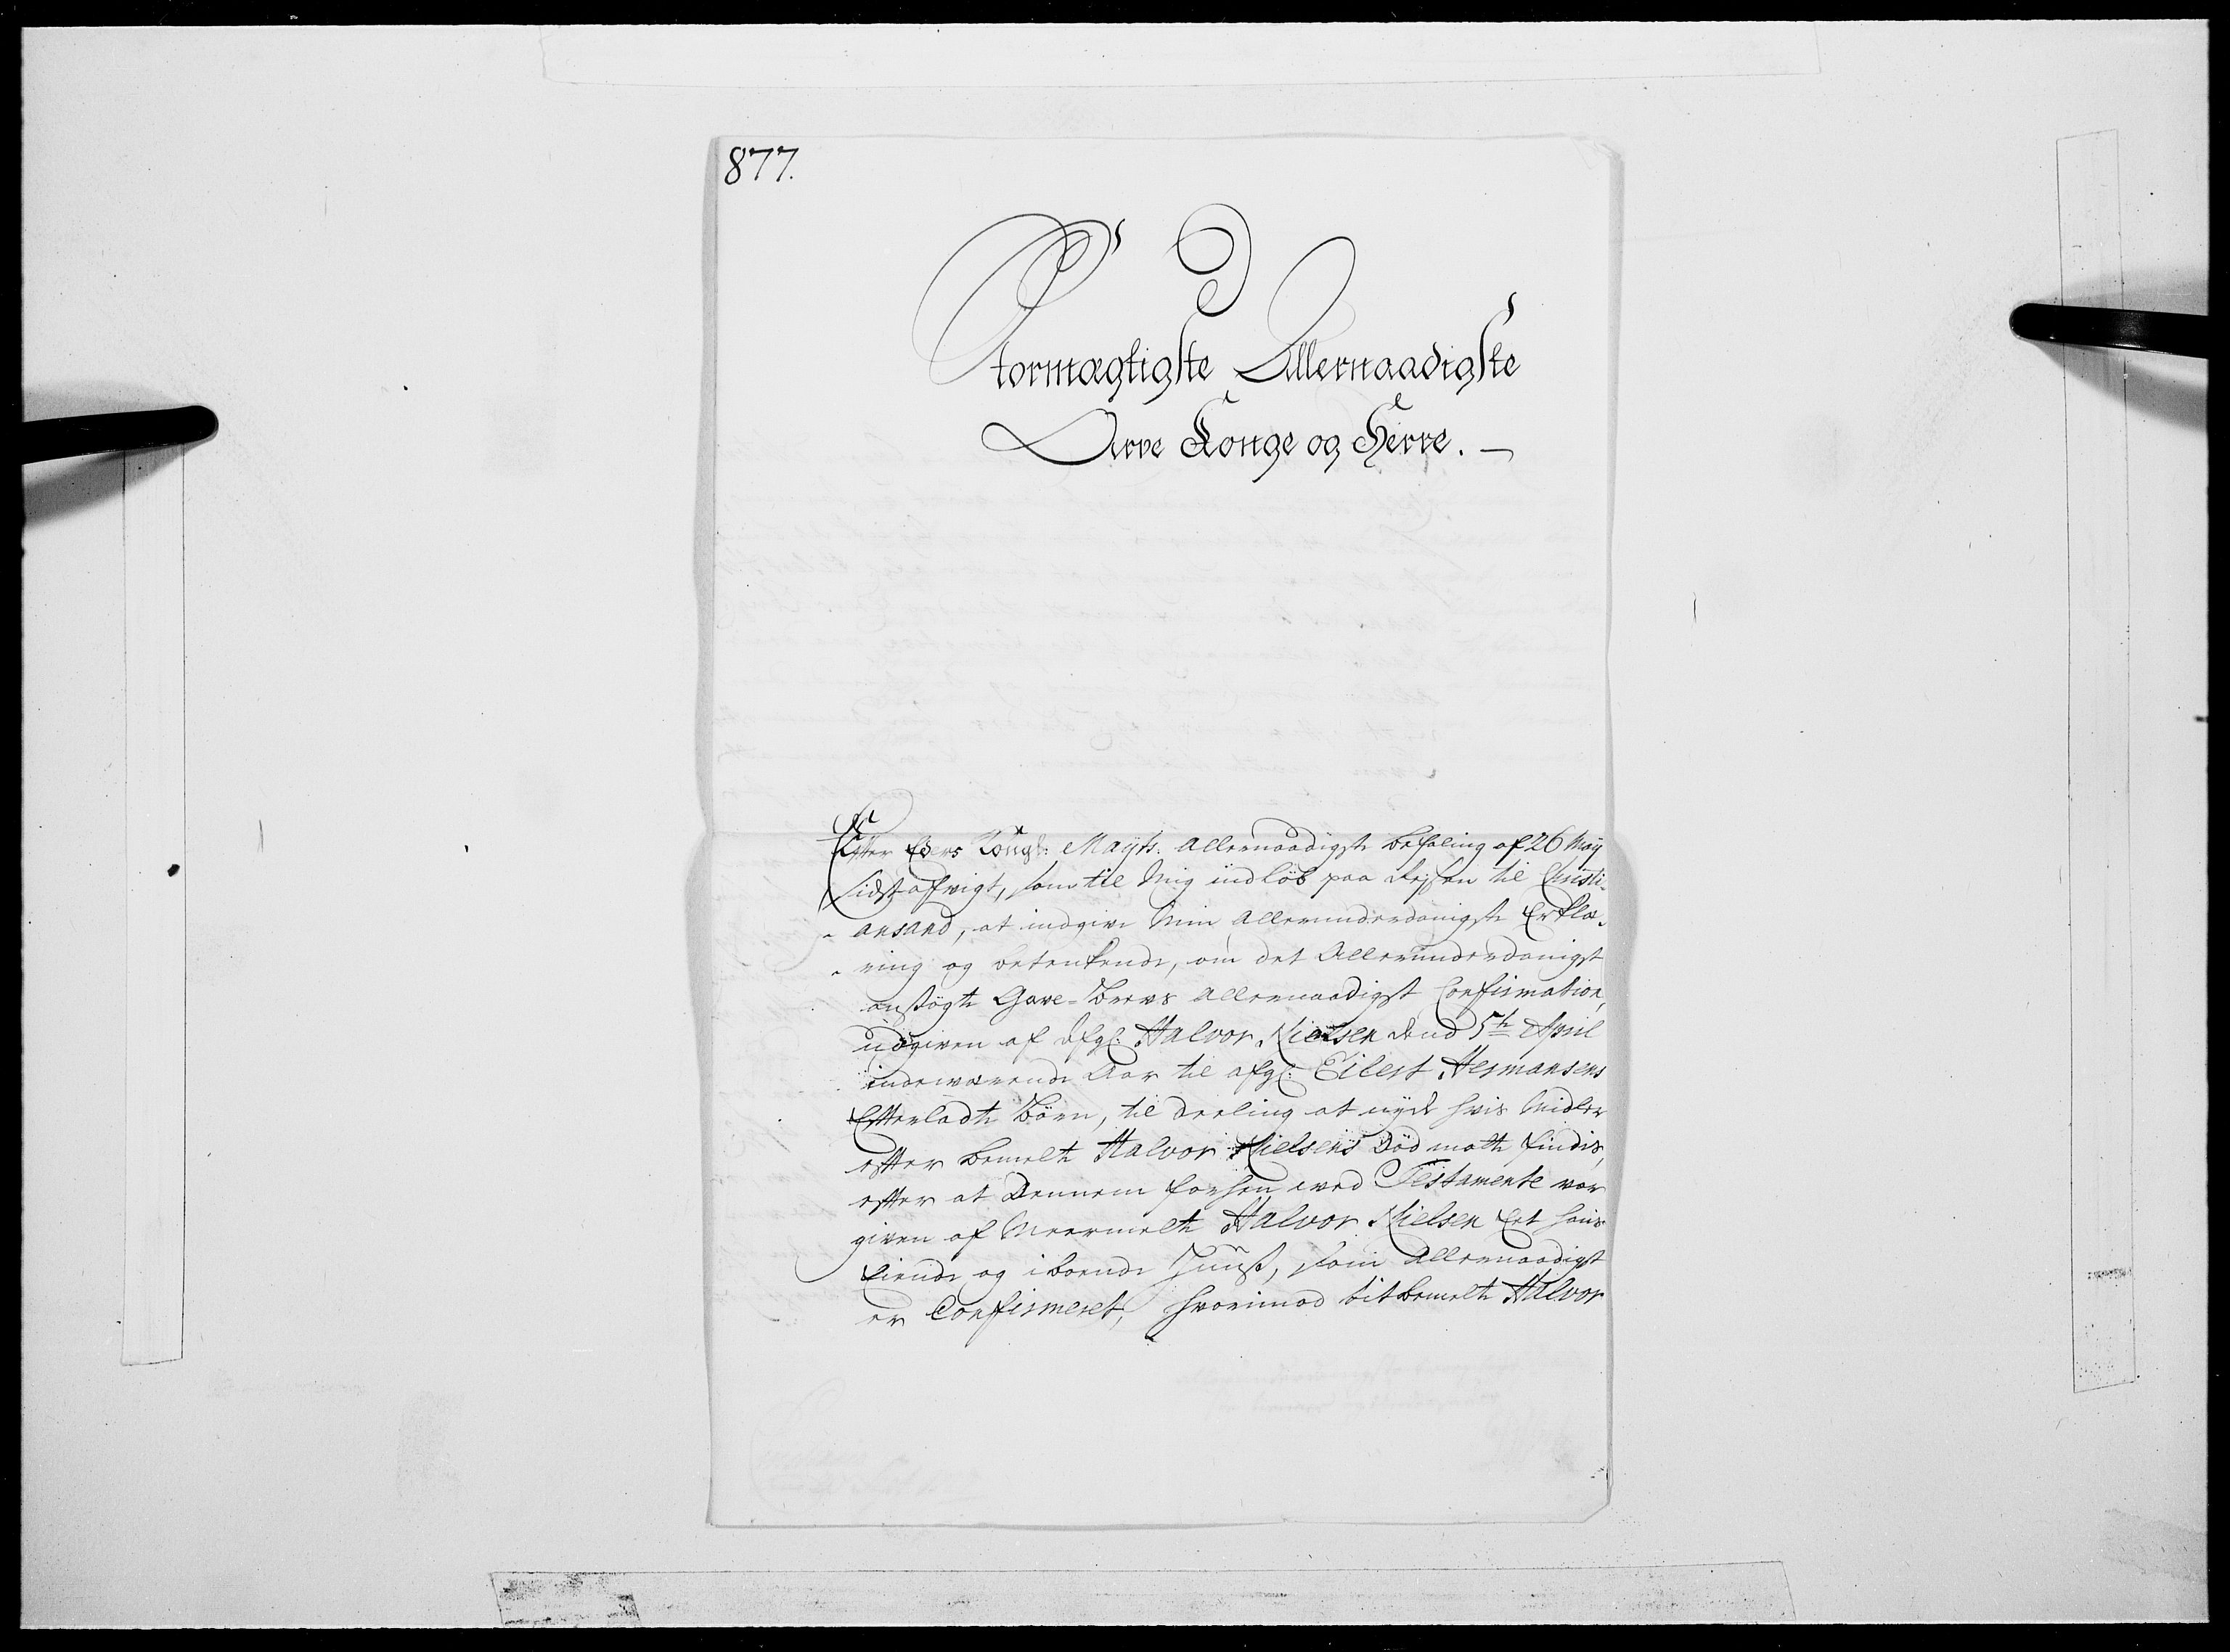 877.
Stormægtigste Allernaadigste
Arve Konge og Herre. –
Efter Eders Kongl: Mayts. Allernaadigste Befaling af 26 Maÿ
sidst afvigt, som til Mig indløb paa Reisen til Christi-
-ansand, at indgive Min Allerunderdanigste Erklæ-
-ring og betenkende, om det Allerunderdanigst
ansøgte Gave-Brevs Allernaadigst Confirmation,
udgiven af Afgl: Halvor Nielsen dend 5te April
indeværende Aar til afgl: Eilert Hermansens
Efterladte Børn, til deeling at nyde hvis Midler
efter bemelte Halvor Nielsens Død matte findis,
efter at Dennem forhen ved Testamente var
given af Meermelte Halvor Nielsen Et hans
Eiende og iboende Huus, som Allernaadigst
er Confirmeret, hvorimod titbemelte Halvor